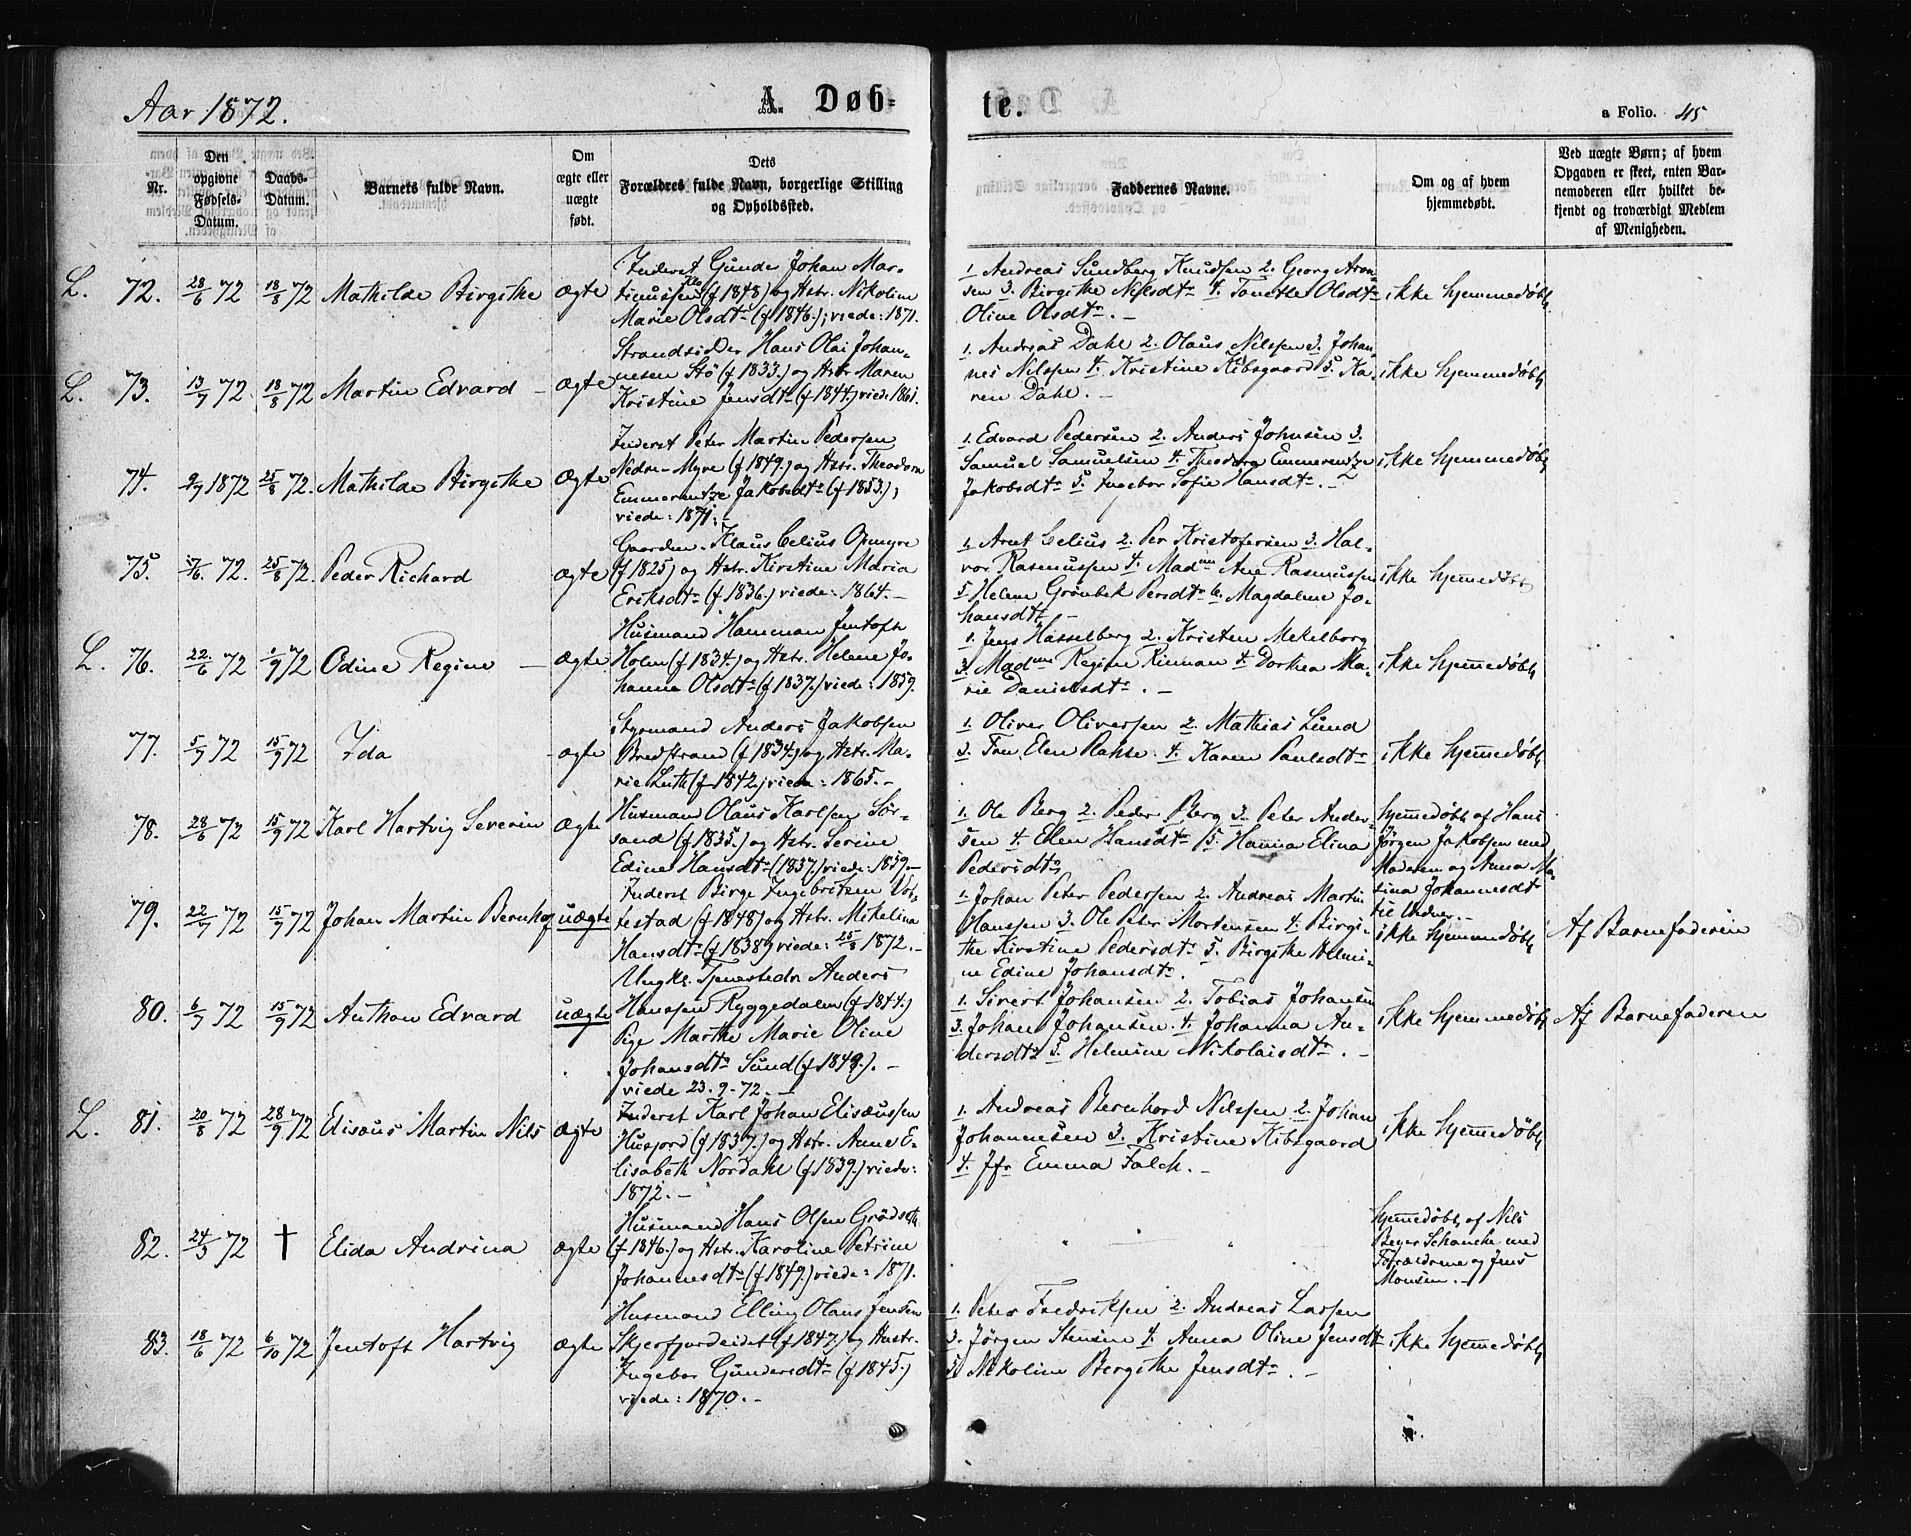 Aar 1872.
A. Døb-
te.
a Folio. 45
Nr.
Den opgivne Fødsels-Datum.
Daabs-Datum.
Barnets fulde Navn.
Om ægte eller uægte født.
Dets Forældres fulde Navn, borgerlige Stilling og Opholdssted.
Faddernes Navne.
Om og af hvem hjemmedøbt.
Ved uægte Børn; af hvem Opgaven er skeet, enten Barnemoderen eller hvilket bekjendt og troværdigt Medlem af Menigheden.
L. 72. 28/6 72 18/8 72 Mathilde Birgithe ægte
Inderst Gunde Johan Mar-
tinussen (f 1848) og Hstr. Nikoline
Marie Olsdtr (f 1846.); viede: 1871.
1. Andreas Sundberg Knudsen 2. Georg Aron-
sen 3. Birgithe Nilsdtr 4. Tonette Olsdtr
Oline Olsdtr. -
ikke hjemmedøbt
L. 73. 13/7 72. 18/8 72 Martin Edvard - ægte
Strandsidder Hans Olai Johan-
nesen Stö (f 1833.) og Hstr. Maren
Kristine Jensdtr (f 1844.) viede 1861.
1. Andreas Dahl 2. Olaus Nilsen 3. Johan-
nes Nilssen 4. Kristine Kibsgaard 5. Ka-
ren Dahl. -
ikke hjemmedøbt
74. 2/7 1872 25/8 72. Mathilde Birgithe ægte
Inderst Peter Martin Pedersen
Nedre-Myre (f 1849.) og Hstr. Theodora
Emmerentze Jakobsdtr (f 1853.);
viede: 1871; -
1. Edvard Pedersen 2. Anders Johnsen 3.
Samuel Samuelsen 4. Theodora Emmerentze
Jakobsdtr 5. Ingebor Sofie Hansdtr. -
ikke hjemmedøbt
75. /6 72. 25/8 72. Peder Richard ægte
Gaardm. Klaus Celius Opmyre
(f 1825) og Hstr. Kirstine Maria
Eriksdtr (f 1836.) viede: 1864. -
1. Arnt Celius 2. Per Kristofersen 3. Hal-
vor Rasmussen 4. Madme Ane Rasmussen
5 Helene Grönbek Persdtr 6. Magdalene Jo-
hansdtr -
ikke hjemmedøbt
L. 76. 22/6 72 1/9 72 Odine Regine - ægte
Husmand Hamman Jentoft
Holm (f 1834.) og Hstr. Helene Jo-
hanna Olsdtr (f 1837.) viede: 1859.
1. Jens Hasselberg 2. Kristen Mekelborg
3. Madme Regine Rinnan 4. Dorthea Ma-
rie Danielsdtr. -
ikke hjemmedøbt
77. 5/7 72 15/9 72 Ida - ægte
Styrmand Anders Jakobsen
Bredstrand (f 1834.) og Hstr. Ma-
rie Luth (f 1842.) viede: 1865. -
1. Oliver Oliversen 2. Mathias Lund
3. Fru Elen Rahse. 4. Karen Paulsdtr
ikke hjemmedøbt
78. 28/6 72 15/9 72 Karl Hartvig Severin ægte
Husmand Olaus Karlsen Sör-
sand (f 1835.) og Hstr. Serine
Edine Hansdtr (1837.) viede: 1859. -
1. Ole Berg 2. Peder Berg 3. Peter Ander-
sen 4. Elen Hansdtr 5. Hanna Elina
Pedersdtr
hjemmedøbt af Hans
Jörgen Jakobsen med
Moderen og Anna Ma-
tina Johannesdtr
til Vidner. -
79. 22/7 72 15/9 72 Johan Martin Bernhof uægte
Inderst Birge Ingebritsen Vot-
testad (f 1848) og Hstr. Mikelina
Hansdtr (f 1838) viede: 25/8 1872. -
1. Johan Peter Pedersen 2. Andreas Martin
Hansen 3. Ole Peter Mortensen 4. Birgi-
the Kirstine Pedersdtr 5. Birgithe Helmi-
ne Edine Johansdtr.
ikke hjemmedøbt
Af Barnefaderen
80. 6/7 72 15/9 72 Anthon Edvard uægte
Ungkl. Tjenestedr. Anders
Hanssen Ryggedalen (f 1844.)
Pige Marthe Marie Oline
Johansdtr Sund (f 1849.). -
viede 23-9-72. -
1. Sivert Johansen 2. Tobias Johansen
3. Johan Johansen. 4. Johanna An-
dersdtr 5. Helmine Nikolaisdtr. -
ikke hjemmedøbt
Af Barnefaderen
L. 81. 20/8 72 28/9 72 Elisæus Martin Nils ægte
Inderst Karl Johan Elisæussen
Husjord (f 1837.) og Hstr. Anne E-
lisabeth Nordahl (f 1839.) viede:
1872. -
1. Andreas Bernhard Nilssen 2. Johan
Johannesen 3. Kristine Kibsgaard
4. Jfr Emma Falch. -
ikke hjemmedøbt
82. 24/3 72 † Elida Andrina ægte
Husmand Hans Olsen Grödseth
(f 1846.) og Hstr. Karoline Petrine
Johannesdtr (f 1849.) viede: 1871.
" " " "
hjemmedøbt af Nils
Beyer Schancke med
Forældrene og Jens
Monsen. -
83. 18/6 72 6/10 72 Jentoft Hartvig ægte
Husmand Elling Olaus Jensen
Skjerfjordeidet (f 1847.) og Hustr.
Ingebor Gundersdtr (f 1845.)
viede: 1870. -
1. Peter Fredriksen 2. Andreas Larsen
3. Jörgen Stensen 4. Anna Oline Jensdtr
5. Nikoline Bergithe Jensdtr. -
ikke hjemmedøbt